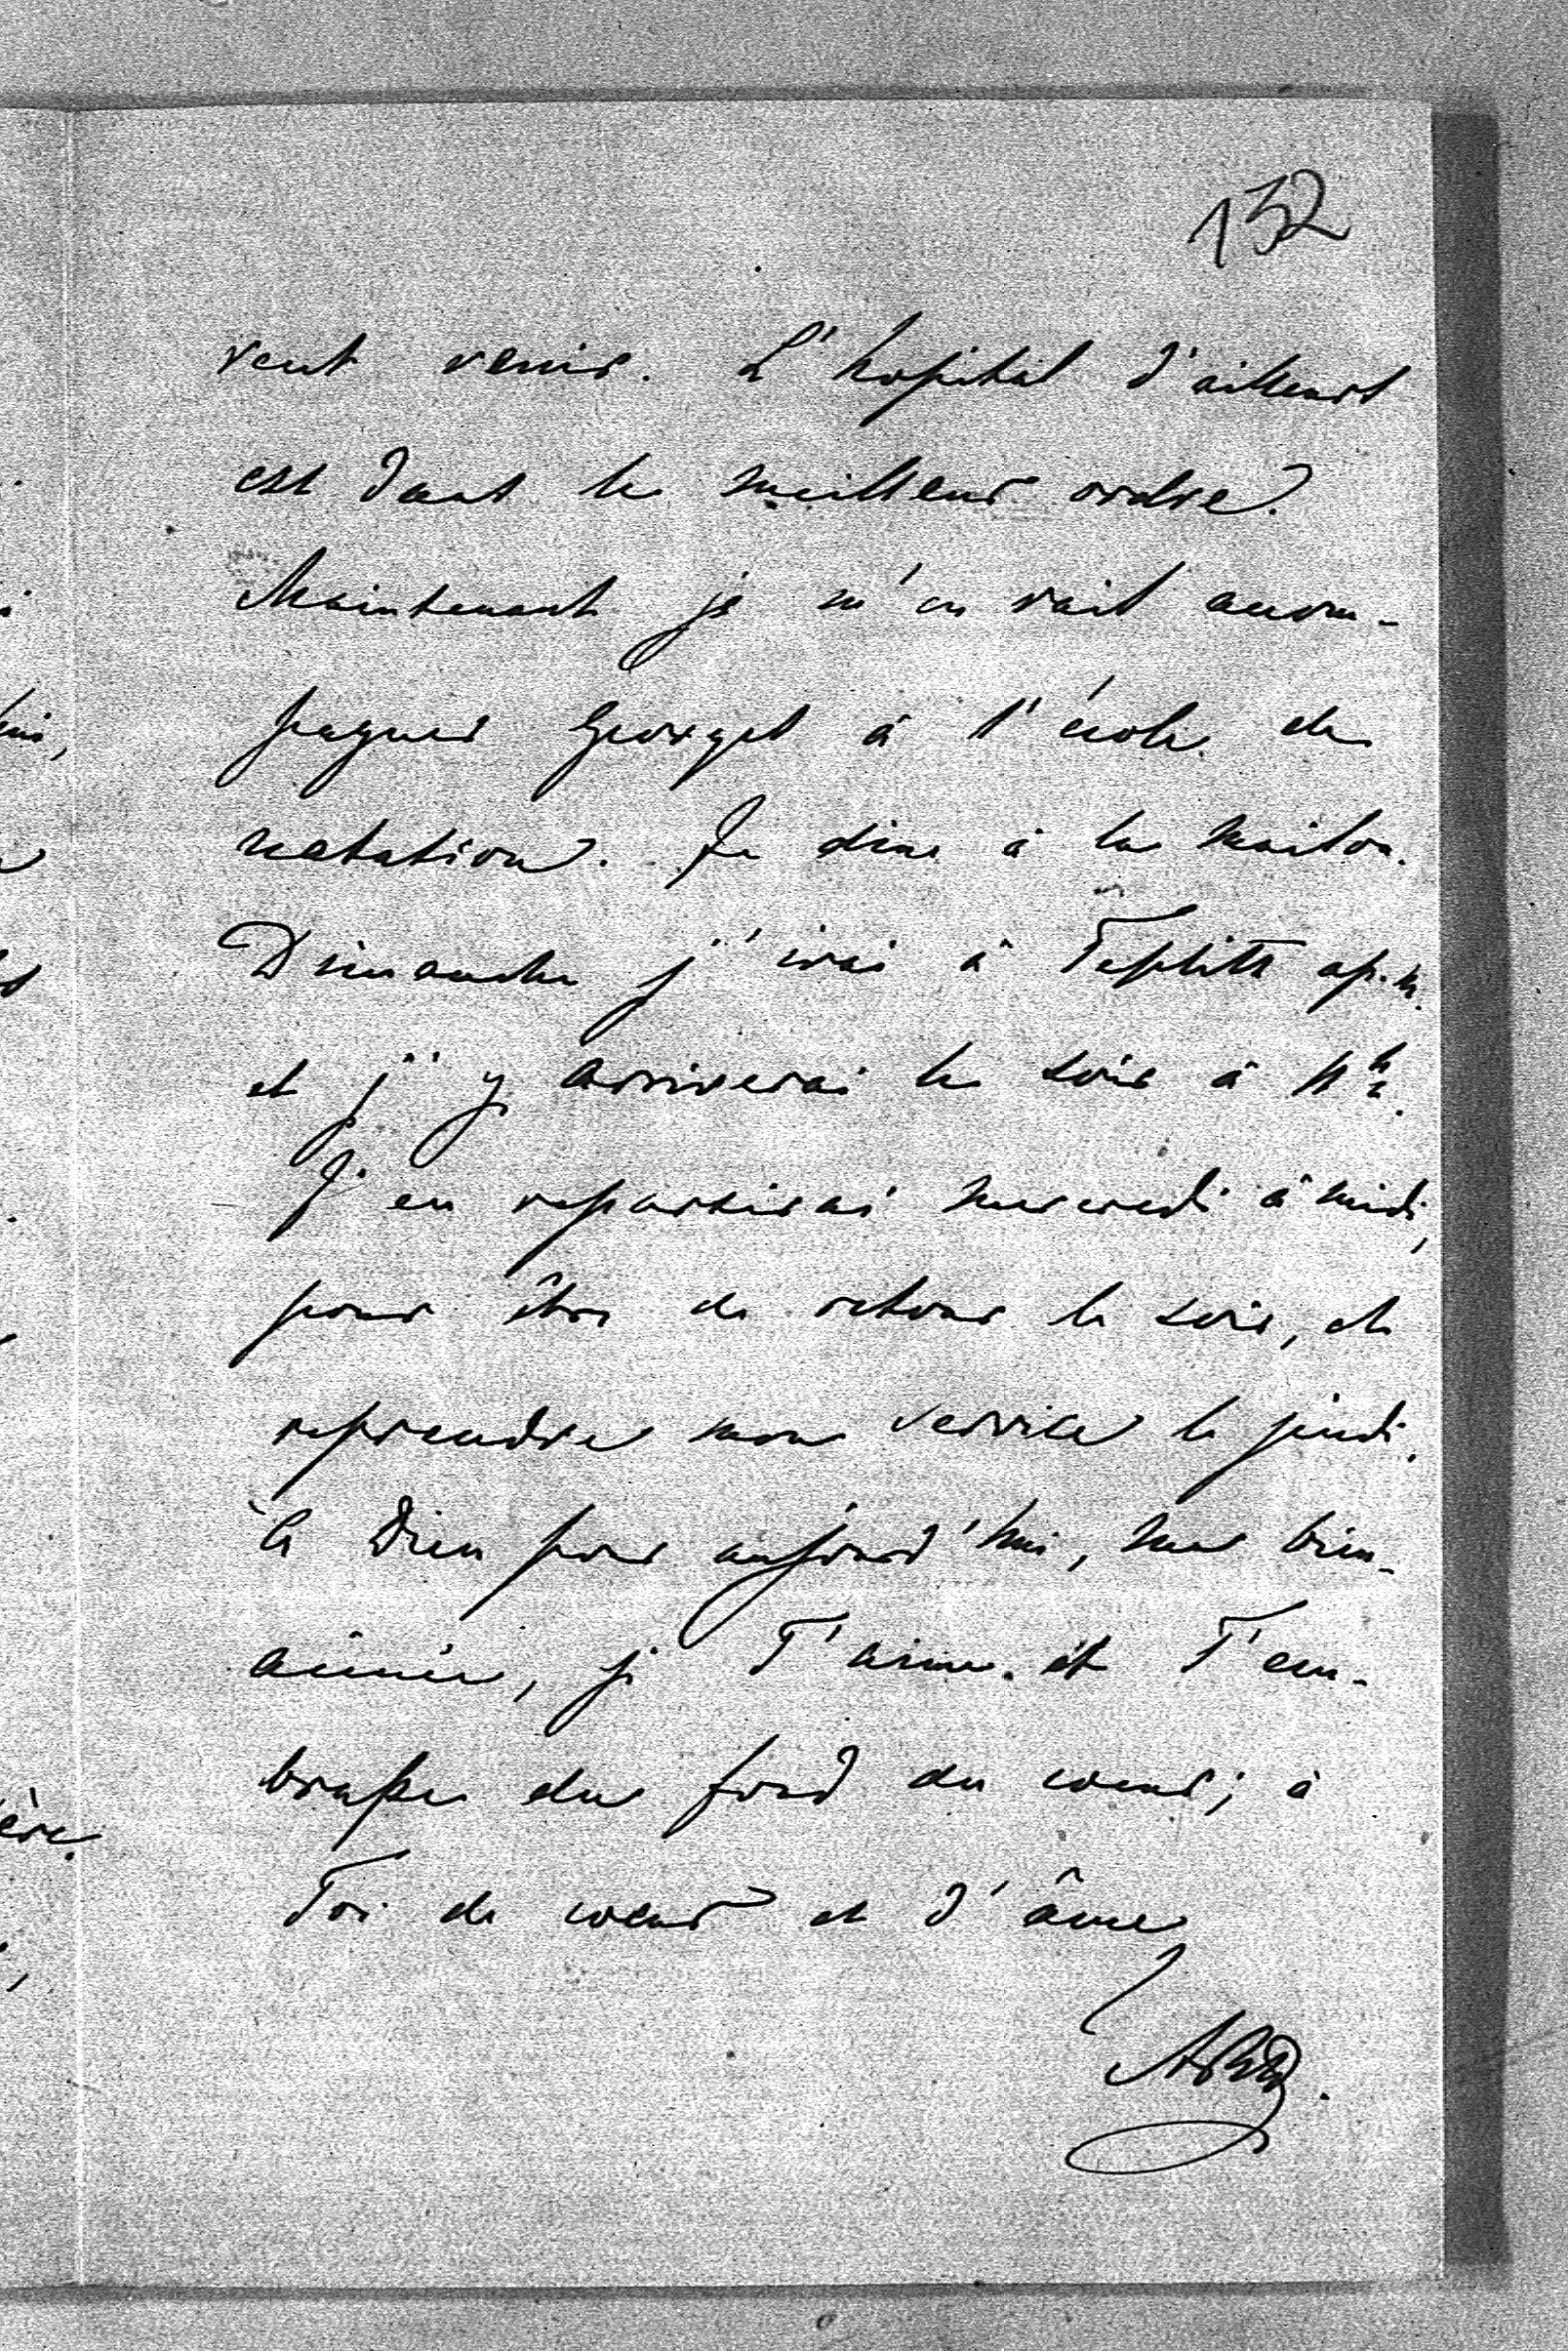 132
veut venir. L'hopital d'ailleurs
est dans le meilleur ordre.
Maintenant je m'en vais accom-
pagner Georges à l'école de
natation. Je dine à la maison.
Dimanche j'irai à Teplitz ap. m.
et j'y arriverai le soir à
J'en repartirai mercredi à midi,
pour être de retour le soir, et
reprendre mon service le jeudi.
À Dieu pour aujourd'hui, ma bien-
aimée, je T'aime et T'em-
brasse du fond du coeur; à
Toi de coeur et d'âme